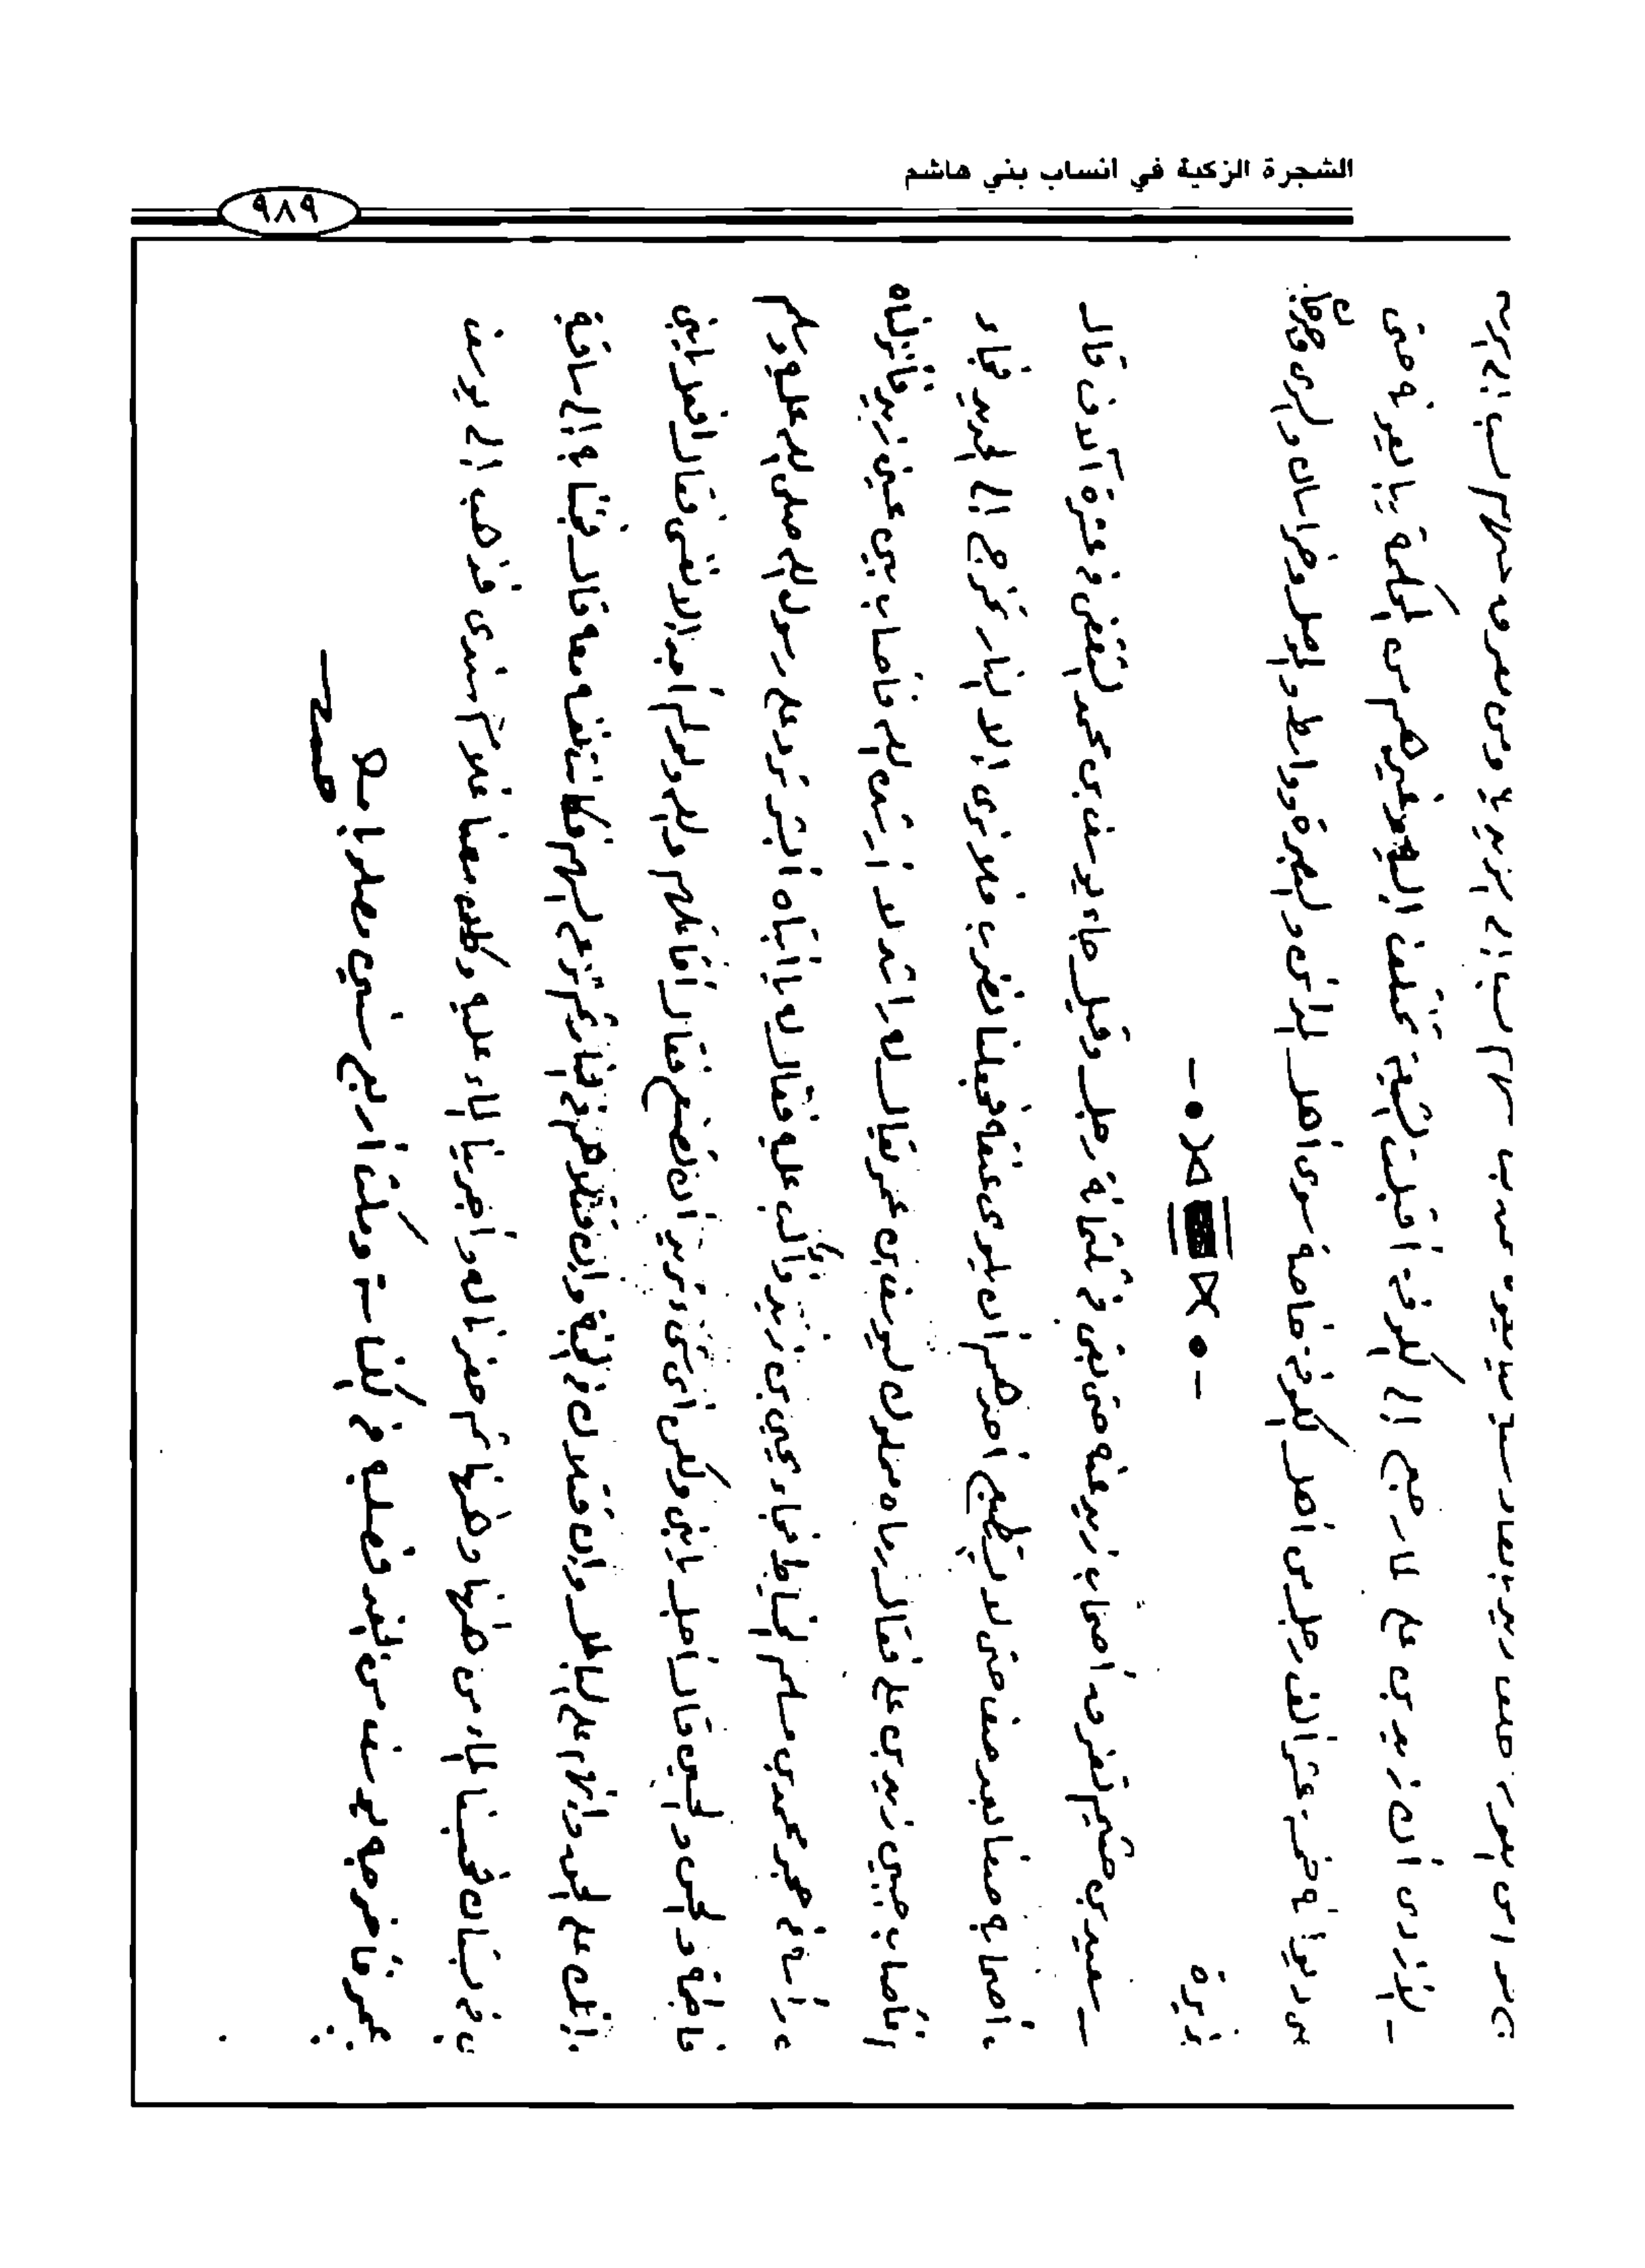 الشجرة الزكية في انساب بني هاشم
٩٨٩
الأزدى أن زيد بن على لما رجع إلى الكوفة أقبلت الشيعة تختلف إليه وغيرهم من المحكمة يبايعونه حتى
ديوانه خمسة عشر ألف رجل من أهل الكوفة خاصة سوى أهل المدائن والبصرة وواسط والموصل وخراسان والرى
سعيد بن خثيم تفرق أصحاب زيد عنه حتى بقى فى ثلثمائة رجل وقيل جاء يوسف بن عمر الثقفى فى عشرة آلاف قال
أصحابه صفا بعد صف حتى لا يستطيع أحدهم أن يلوى عنقه فجعلنا نضرب فلا نرى إلا النار تخرج إلى الحديد فجاء
فأصاب جبين زيد بن على فقال رماه مملوك ليوسف بن عمر يقال له راشد لا أرشده الله فأصاب بين عينى زيد فأنزلناه
رأسه فى حجر محمد بن مسلم الخياط فجاء يحيى بن زيد وأكب عليه فقال له يا أبتاه أبشر ترد على رسول الله صلى الله عليه وسلم
فاطمة والحسن والحسين قال أجل يا بنى ولكن أى شىء تريد أن تصنع فقال أقاتلهم والله ولو لم أجد إلا نفسى فقال افعل يا بنى
إنك على الحق وإنهم على الباطل وإن قتلاك فى الجنة وإن قتلاهم فى النار ثم نزع السهم فكانت نفسه معه قال فجئنا به إلى ساقية
فى بستان فحبسنا الماء من هٰهنا وهٰهنا ثم حفرنا له وأجرينا الماء عليه وكان معنا غلام سندى فذهب إلى يوسف
عمر فأخرجه يوسف من الغد فصلبه فى الكناسة ومكث أربع سنين مصلوبا